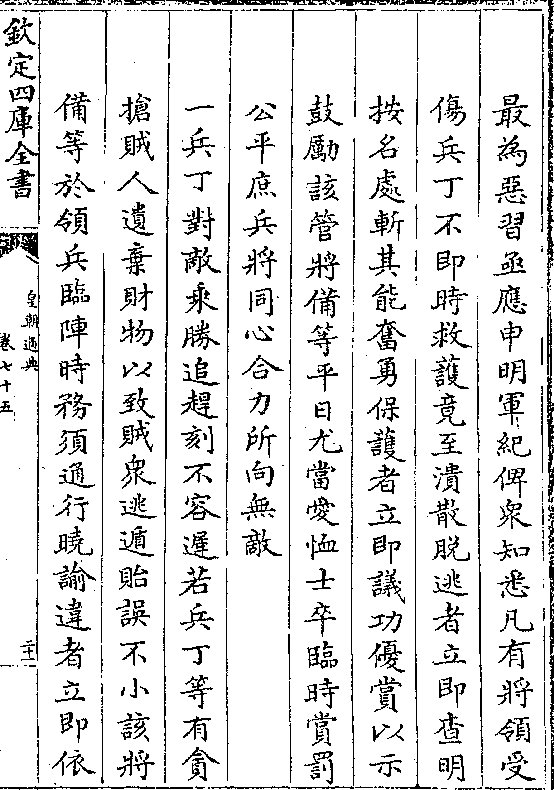 最為惡習亟應申明軍紀俾衆知悉凡有將領受
傷兵丁不即時救護竟至潰散脫逃者立即查明
按名處斬其能奮勇保護者立即議功優賞以示
鼓勵該管將備等平日尤當愛恤士卒臨時賞罰
公平庶兵將同心合力所向無敵
一兵丁對敵乘勝追趕刻不容遲若兵丁等有貪
搶賊人遺棄財物以致賊衆逃遁貽誤不小該將
備等於領兵臨陣時務須通行曉諭違者立即依
欽定四庫全書
皇朝通典
卷七十五
二十一